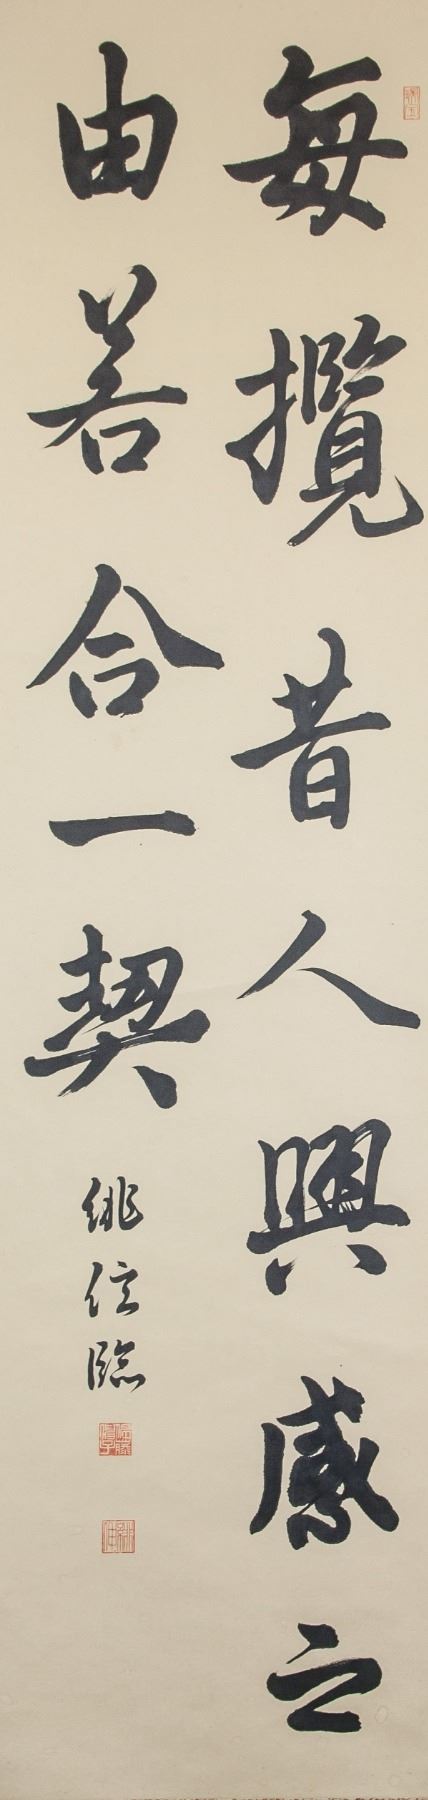 每攬昔人興感之
由若合一契
緋信臨